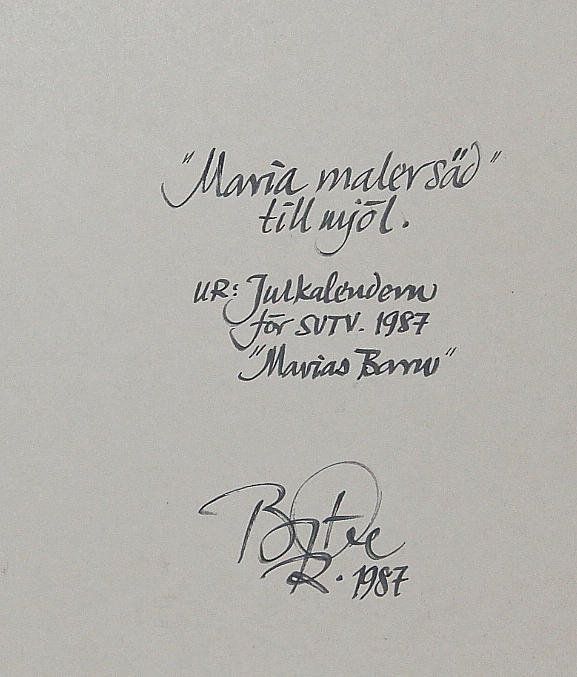 "Maria maler säd"
till mjöl.
UR: Julkalendern
för SVTV. 1987
"Marias Barn"
R. 1987